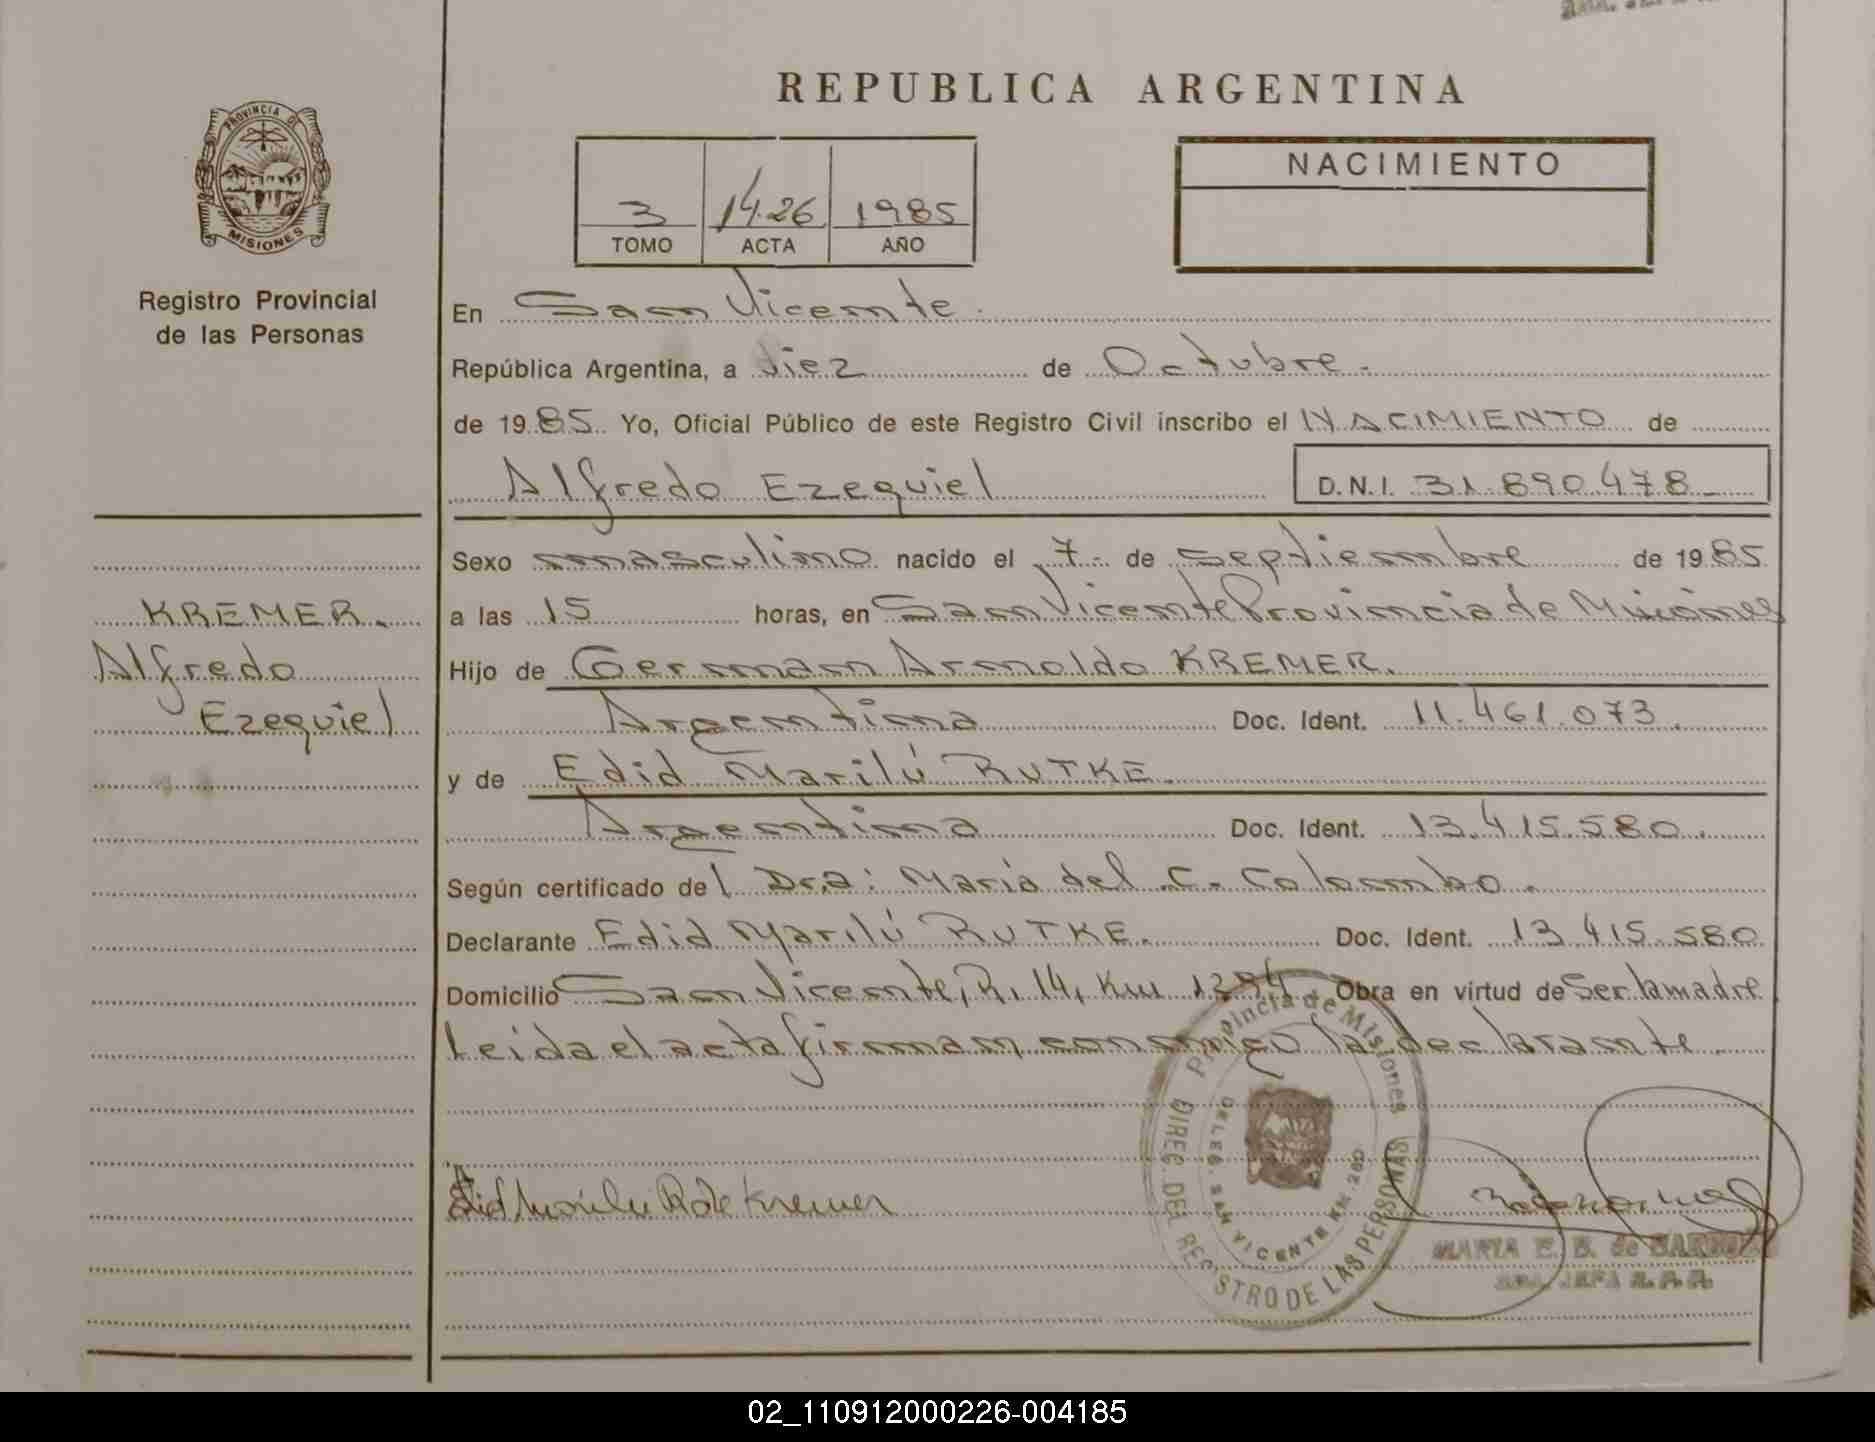 REPUBLICA ARGENTINA
PROVINCIA DE
MISIONES
Registro Provincial
de las Personas
3 1426 1985
TOMO ACTA AÑO
NACIMIENTO
En San Vicente.
República Argentina, a diez de Octubre.
de 1985 Yo, Oficial Público de este Registro Civil inscribo el NACIMIENTO de
Alfredo Ezequiel D.N.I. 31.890.478
Sexo masculino nacido el 7 de septiembre de 1985
KREMER. a las 15 horas, en San Vicente Provincia de Misiones
Alfredo Hijo de German Arnoldo KREMER.
Ezequiel Argentina Doc. Ident. 11.461.073.
y de Edid Marilú RUTKE.
Argentina Doc. Ident. 13.415.580.
Según certificado del Dra: Maria del C. Colombo.
Declarante Edid Marilú RUTKE. Doc. Ident. 13.415.580
Domicilio San Vicente, R. 14, Km 1294 Obra en virtud de Ser la madre
Leida el acta firman conmigo la declarante
Provincia de Misiones
DIREC. DEL REGISTRO DE LAS PERSONAS
DELEG. SAN VICENTE KM. 280
Kremer
MARIA E. B. de
JEFA
02_110912000226-004185